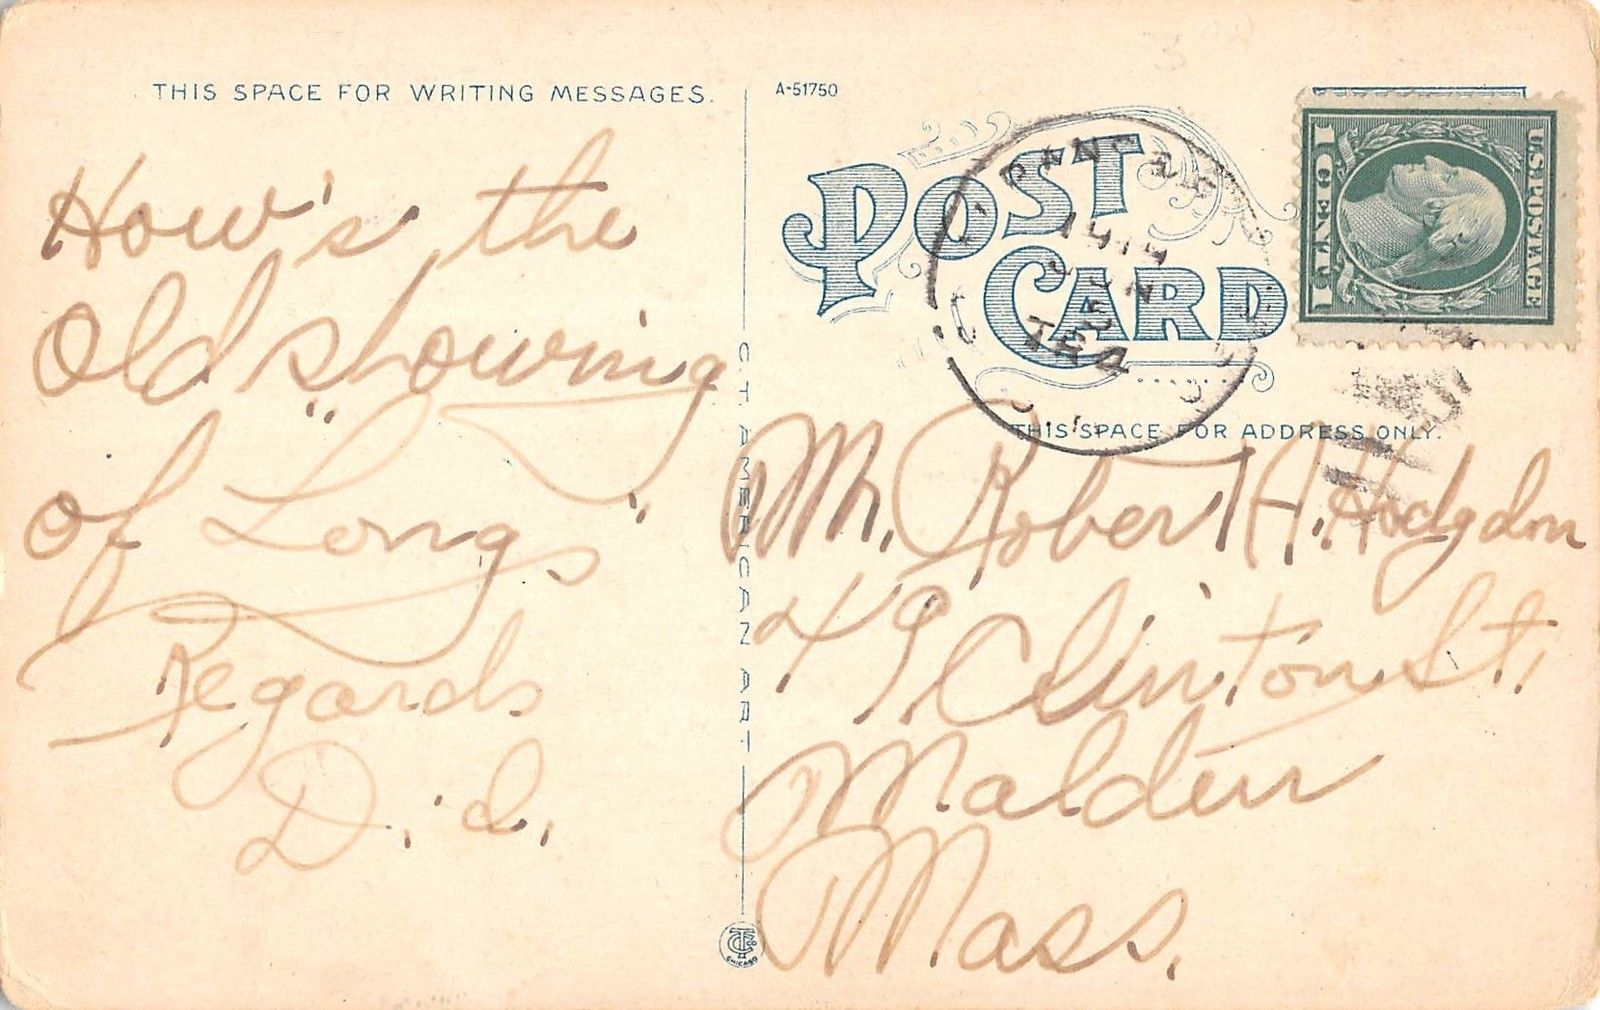 THIS SPACE FOR WRITING MESSAGES.
How's the
Old showing
of "Long"
Regards
D.d.
C.T. AMERICAN ART
CHICAGO
A-51750
POST
CARD
U.S. POSTAGE
1 CENT 1
THIS SPACE FOR ADDRESS ONLY.
Mr. Robert H. Hodgdon
49 Clinton St.
Malden
Mass.